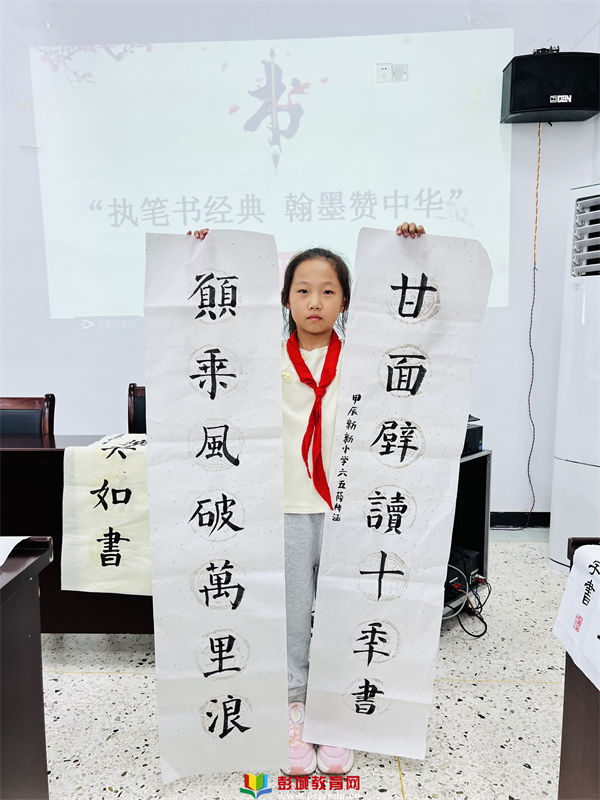 书
“执笔书经典 翰墨赞中华”
願乗風破萬里浪
甘面壁讀十秊書
甲辰新新小学六五
如書
書
彭城教育网